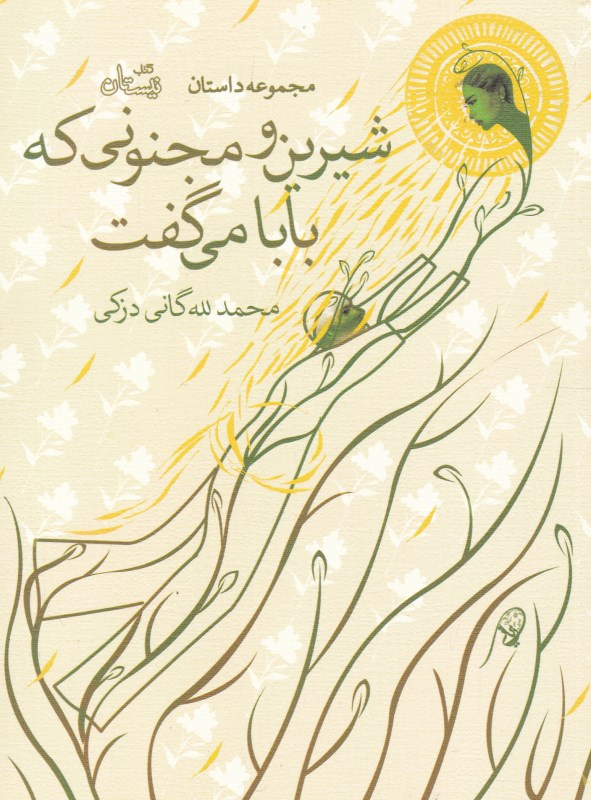 مجموعه داستان
کتاب نیستان
شیرین و مجنونی که
بابا می‌گفت
محمد لله گانی دزکی